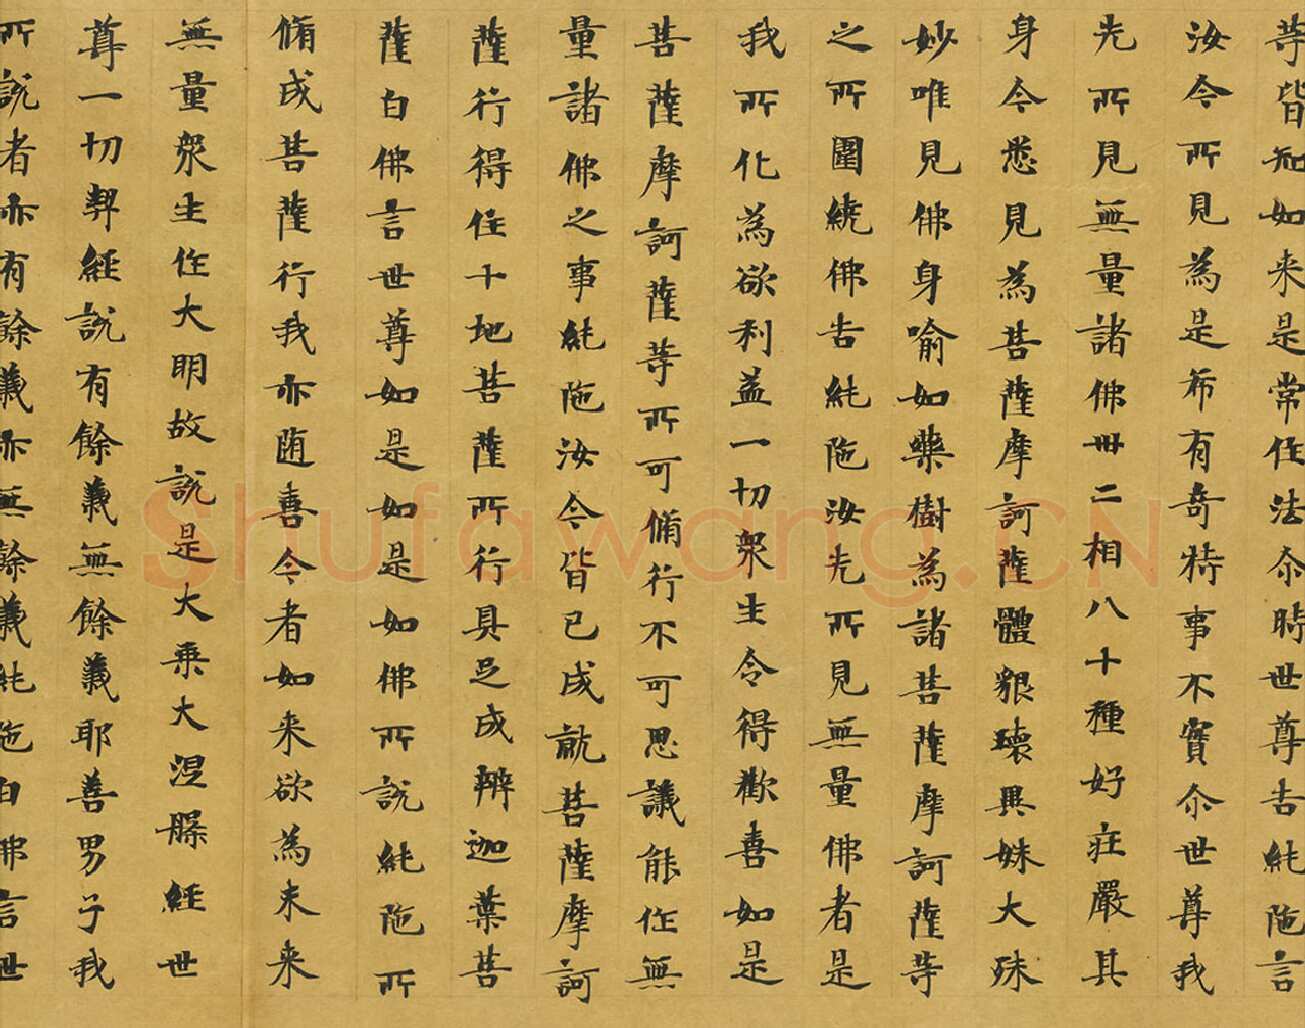 等皆知如来是常住法尒時世尊告純陁言
汝今所見為是希有奇特事不實尒世尊我
先所見無量諸佛卅二相八十種好莊嚴其
身今悉見為菩薩摩訶薩體貇瓌異姝大殊
妙唯見佛身喻如藥樹為諸菩薩摩訶薩等
之所圍繞佛告純陁汝先所見無量佛者是
我所化為欲利益一切衆生令得歡喜如是
菩薩摩訶薩等所可脩行不可思議能作無
量諸佛之事純陁汝今皆已成就菩薩摩訶
薩行得住十地菩薩所行具足成辦迦葉菩
薩白佛言世尊如是如是如佛所說純陁所
脩成菩薩行我亦随喜今者如来欲為未来
無量衆生作大明故說是大乗大涅槃經世
尊一切契經說有餘義無餘義耶善男子我
所說者亦有餘義亦無餘義純陁白佛言世
Shufawang.CN